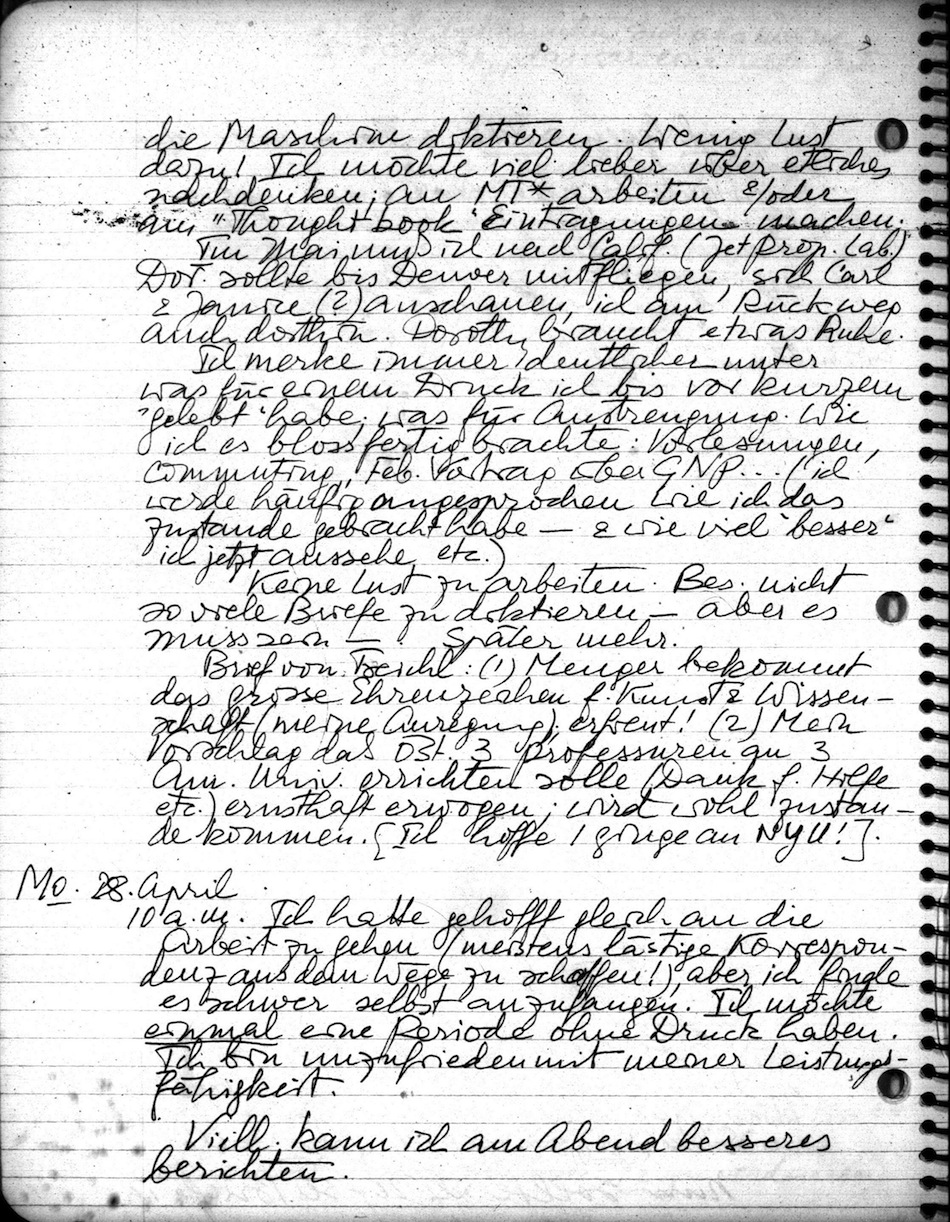 die Maschine diktieren. Wenig Lust
dazu! Ich möchte viel lieber über etliches
nachdenken; an MT* arbeiten &/oder
am "Thought book" Eintragungen machen.
Im Mai muß ich nach Calif. (Jet Prop. Lab.)
Dor. sollte bis Denver mitfliegen, sich Carl
& Janice (?) anschauen, ich am Rückweg
auch dorthin. Dorothy braucht etwas Ruhe.
Ich merke immer deutlicher unter
was für einem Druck ich bis vor kurzem
"gelebt" habe; was für Anstrengung. Wie
ich es bloss fertig brachte: Vorlesungen,
Commuting, Feb. Vortrag über GNP... (ich
werde häufig angesprochen wie ich das
zustande gebracht habe — & wie viel "besser"
ich jetzt aussehe, etc.)
Keine Lust zu arbeiten. Bes. nicht
so viele Briefe zu diktieren — aber es
muss sein —. Später mehr.
Brief von : (1) Menger bekommt
das grosse Ehrenzeichen f. Kunst & Wissen-
schaft (meine Anregung), erfreut! (2) Mein
Vorschlag das Öst. 3 Professuren an 3
Am. Univ. errichten solle (Dank f. Hilfe
etc.) ernsthaft erwogen; wird wohl zustan-
de kommen. [Ich hoffe 1 ginge an NYU!].
Mo. 28. April.
10 a.m. Ich hatte gehofft gleich an die
Arbeit zu gehen (meistens lästige Korrespon-
denz aus dem Wege zu schaffen!), aber ich finde
es schwer selbst anzufangen. Ich möchte
einmal eine Periode ohne Druck haben.
Ich bin unzufrieden mit meiner Leistungs-
fähigkeit.
Viell. kann ich am Abend besseres
berichten.